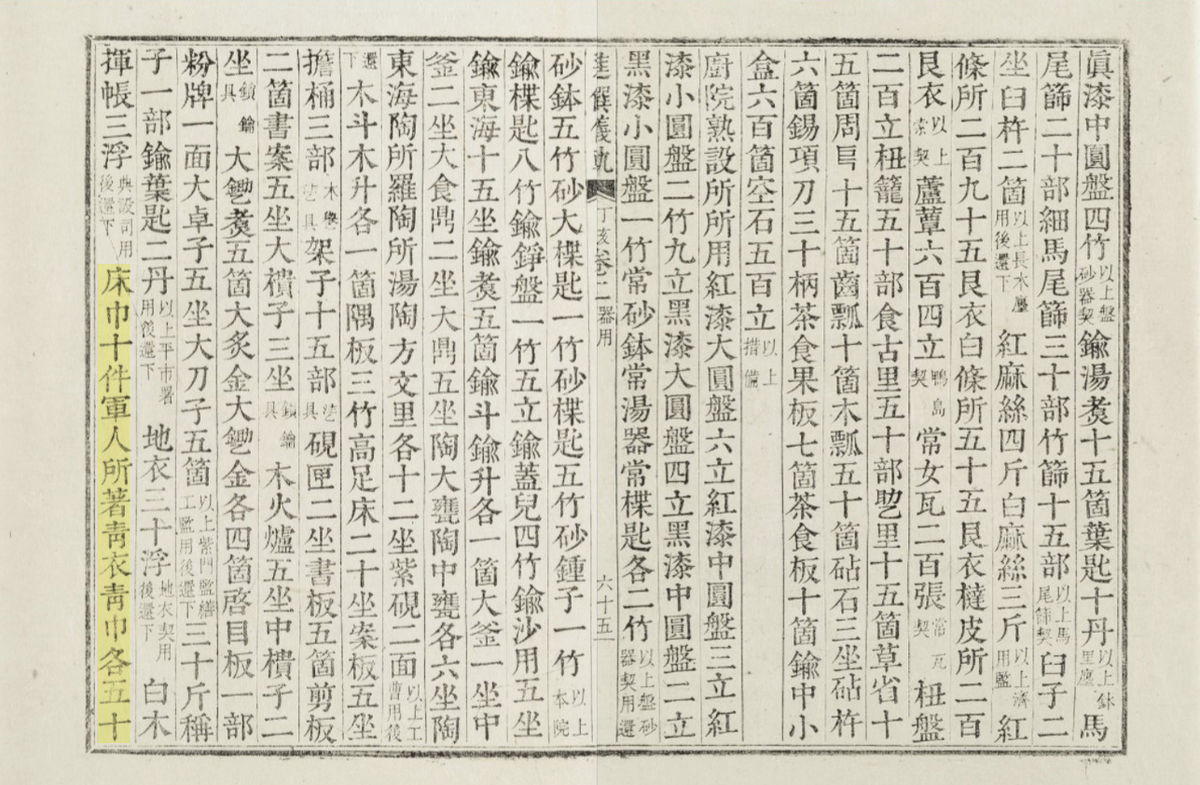 眞漆中圓盤四竹以上盤砂器契鍮湯煑十五箇葉匙十丹以上鉢里廛馬
尾篩二十部細馬尾篩三十部竹篩十五部以上馬尾篩契臼子二
坐臼杵二箇以上長木廛用後還下紅麻絲四斤白麻絲三斤以上濟用監紅
條所二百九十五艮衣白條所五十五艮衣㯓皮所二百
艮衣以上索契蘆蕈六百四立鴨島契常女瓦二百張常瓦契杻盤
二百立杻籠五十部食古里五十部乻里十五箇草省十
五箇周巪十五箇齒瓢十箇木瓢五十箇砧石三坐砧杵
六箇錫項刀三十柄茶食果板七箇茶食板十箇鍮中小
盒六百箇空石五百立以上措備
廚院熟設所所用紅漆大圓盤六立紅漆中圓盤三立紅
漆小圓盤二竹九立黑漆大圓盤四立黑漆中圓盤二立
黑漆小圓盤一竹常砂鉢常湯器常楪匙各二竹以上盤砂器契用還
進饌儀軌 丁亥卷二 器用 六十五
砂鉢五竹砂大楪匙一竹砂楪匙五竹砂鍾子一竹以上本院
鍮楪匙八竹鍮錚盤一竹五立鍮蓋兒四竹鍮沙用五坐
鍮東海十五坐鍮煑五箇鍮斗鍮升各一箇大釜一坐中
釜二坐大食鼎二坐大鼎五坐陶大甕陶中甕各六坐陶
東海陶所羅陶所湯陶方文里各十二坐紫硯二面以上工曹用後
還下木斗木升各一箇隅板三竹高足床二十坐案板五坐
擔桶三部木擧乼具架子十五部乼具硯匣二坐書板五箇剪板
二箇書案五坐大樻子三坐鎖鑰具木火爐五坐中樻子二
坐鎖鑰具大䥐煑五箇大炙金大䥐金各四箇啓目板一部
粉牌一面大卓子五坐大刀子五箇以上紫門監繕工監用後還下三十斤稱
子一部鍮葉匙二丹以上平市署用後還下地衣三十浮地衣契用後還下白木
揮帳三浮典設司用後還下床巾十件軍人所著靑衣靑巾各五十